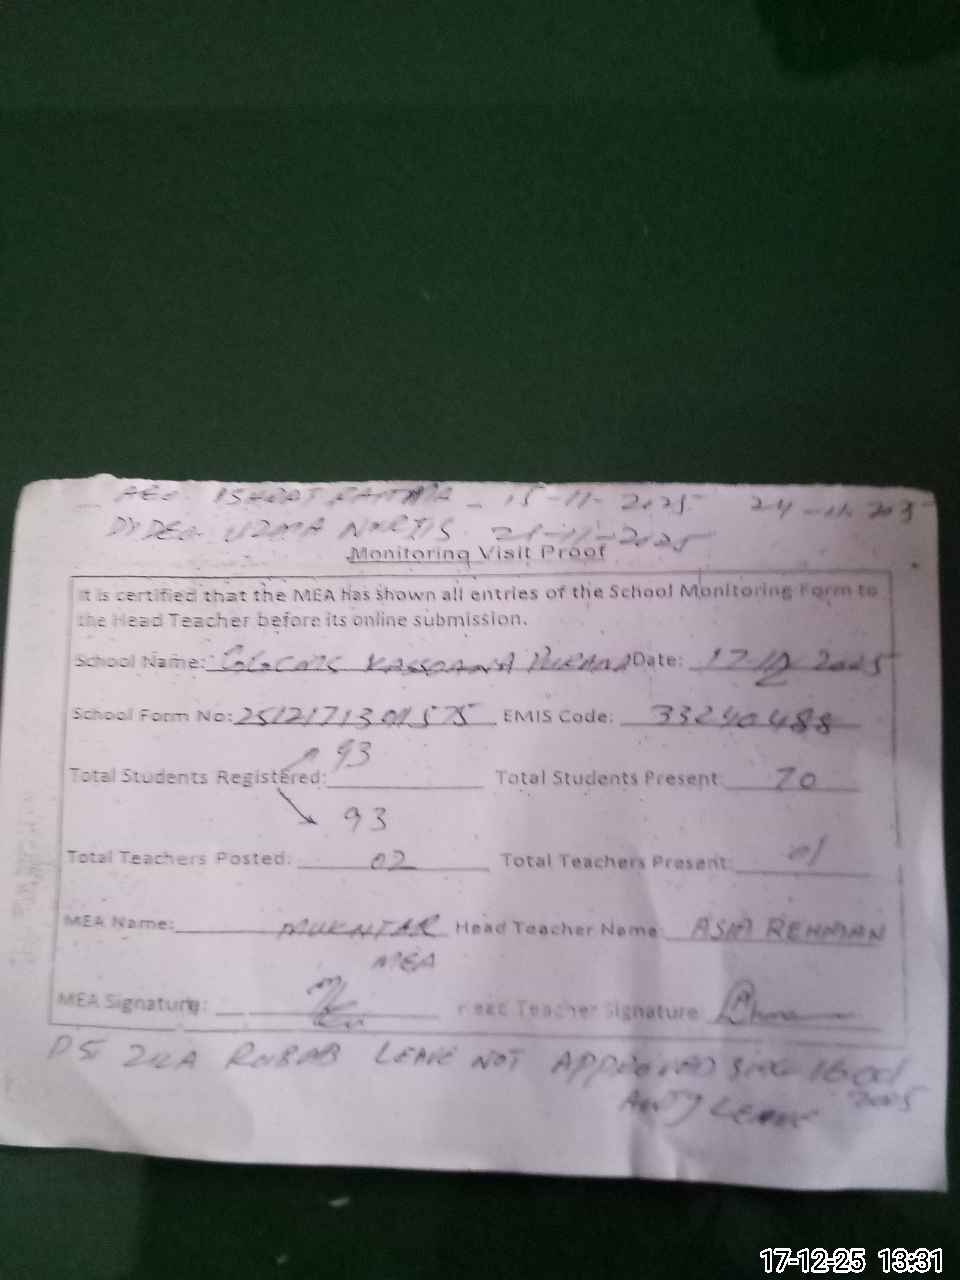 AEO. ISHRAT FATIMA - 15-11-2025 24-11-2025
DY DEO. UZMA NARJIS. 21-11-2025
Monitoring Visit Proof
It is certified that the MEA has shown all entries of the School Monitoring Form to
the Head Teacher before its online submission.
School Name: KASSOANA Date: 17-12-2025
School Form No: 25121713011575 EMIS Code: 33240488
93
Total Students Registered: Total Students Present: 70
93
Total Teachers Posted: 02 Total Teachers Present: 01
MEA Name: MUKHTAR Head Teacher Name: ASIA REHMAN
MEA
MEA Signature: Head Teacher Signature
LEAVE NOT APPROVED 16 Oct
2025
LEAVE
17-12-25 13:31